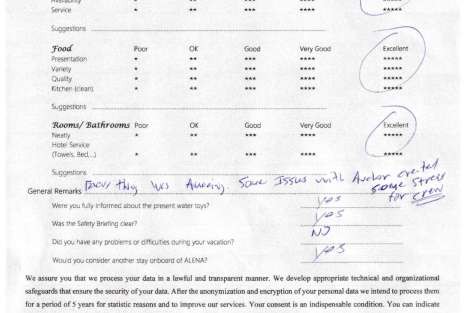 Service * ** *** **** *****
Suggestions
Food Poor OK Good Very Good Excellent
Presentation * ** *** **** *****
Variety * ** *** **** *****
Quality * ** *** **** *****
Kitchen (clean) * ** *** **** *****
Suggestions
Rooms/ Bathrooms Poor OK Good Very Good Excellent
Neatly * ** *** **** *****
Hotel Service
(Towels, Bed,...) * ** *** **** *****
Suggestions
General Remarks Every thing was Amazing. Some Issues with Anchor created some stress for crew
Were you fully informed about the present water toys? yes
Was the Safety Briefing clear? yes
Did you have any problems or difficulties during your vacation? NO
Would you consider another stay onboard of ALENA? yes
We assure you that we process your data in a lawful and transparent manner. We develop appropriate technical and organizational
safeguards that ensure the security of your data. After the anonymization and encryption of your personal data we intend to process them
for a period of 5 years for statistic reasons and to improve our services. Your consent is an indispensable condition. You can indicate